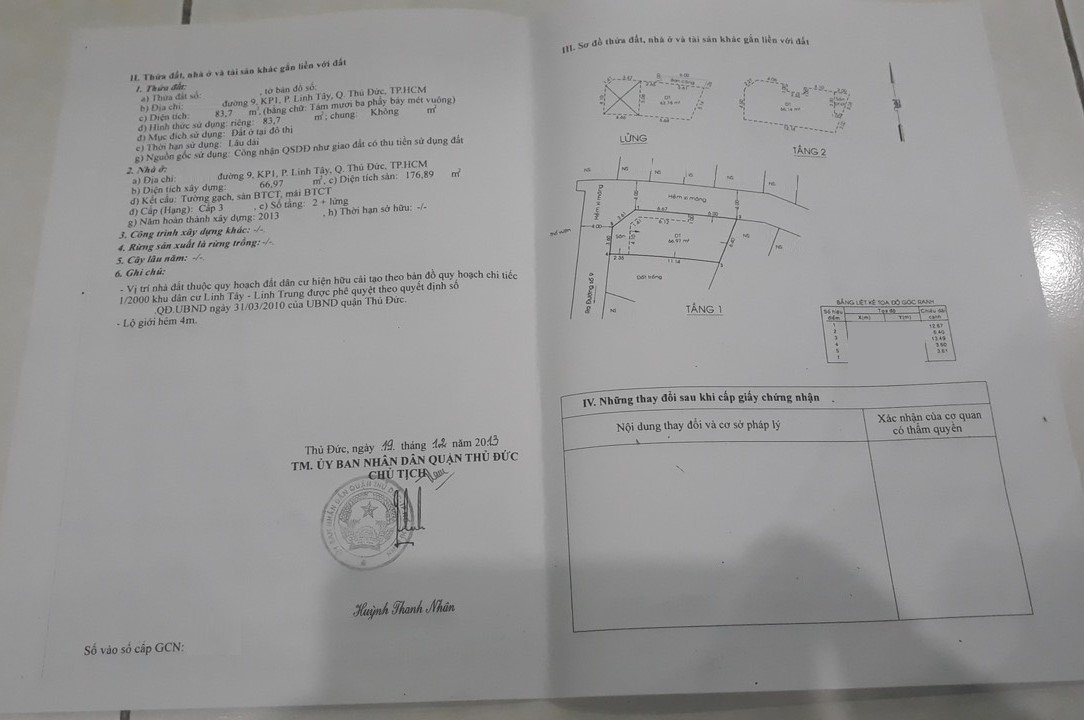 II. Thửa đất, nhà ở và tài sản khác gắn liền với đất
1. Thửa đất:
a) Thửa đất số: , tờ bản đồ số:
b) Địa chỉ: đường 9, KP1, P. Linh Tây, Q. Thủ Đức, TP.HCM
c) Diện tích: 83,7 m². (bằng chữ: Tám mươi ba phẩy bảy mét vuông)
d) Hình thức sử dụng: riêng: 83,7 m²; chung: Không m²
đ) Mục đích sử dụng: Đất ở tại đô thị
e) Thời hạn sử dụng: Lâu dài
g) Nguồn gốc sử dụng: Công nhận QSDĐ như giao đất có thu tiền sử dụng đất
2. Nhà ở:
a) Địa chỉ: đường 9, KP1, P. Linh Tây, Q. Thủ Đức, TP.HCM
b) Diện tích xây dựng: 66,97 m², c) Diện tích sàn: 176,89 m²
d) Kết cấu: Tường gạch, sàn BTCT, mái BTCT
đ) Cấp (Hạng): Cấp 3 , e) Số tầng: 2 + lửng
g) Năm hoàn thành xây dựng: 2013 , h) Thời hạn sở hữu: -/-
3. Công trình xây dựng khác: -/-
4. Rừng sản xuất là rừng trồng: -/-
5. Cây lâu năm: -/-
6. Ghi chú:
- Vị trí nhà đất thuộc quy hoạch đất dân cư hiện hữu cải tạo theo bản đồ quy hoạch chi tiết
1/2000 khu dân cư Linh Tây - Linh Trung được phê quyệt theo quyết định số
QĐ.UBND ngày 31/03/2010 của UBND quận Thủ Đức.
- Lộ giới hẻm 4m.
Thủ Đức, ngày 19 tháng 12 năm 2013
TM. ỦY BAN NHÂN DÂN QUẬN THỦ ĐỨC
CHỦ TỊCH
Huỳnh Thanh Nhân
Số vào sổ cấp GCN:
III. Sơ đồ thửa đất, nhà ở và tài sản khác gắn liền với đất
LỬNG
TẦNG 2
Hẻm xi măng
Hẻm xi măng
Sân
66.97 m²
Đất trống
11.14
Ra Đường số 9
TẦNG 1
BẢNG LIỆT KÊ TỌA ĐỘ GÓC RANH
Số hiệu điểm Tọa độ Chiều dài cạnh
X(m) Y(m)
1 12.67
2 6.40
3 13.49
4 3.60
5 3.61
1
IV. Những thay đổi sau khi cấp giấy chứng nhận
Nội dung thay đổi và cơ sở pháp lý
Xác nhận của cơ quan
có thẩm quyền